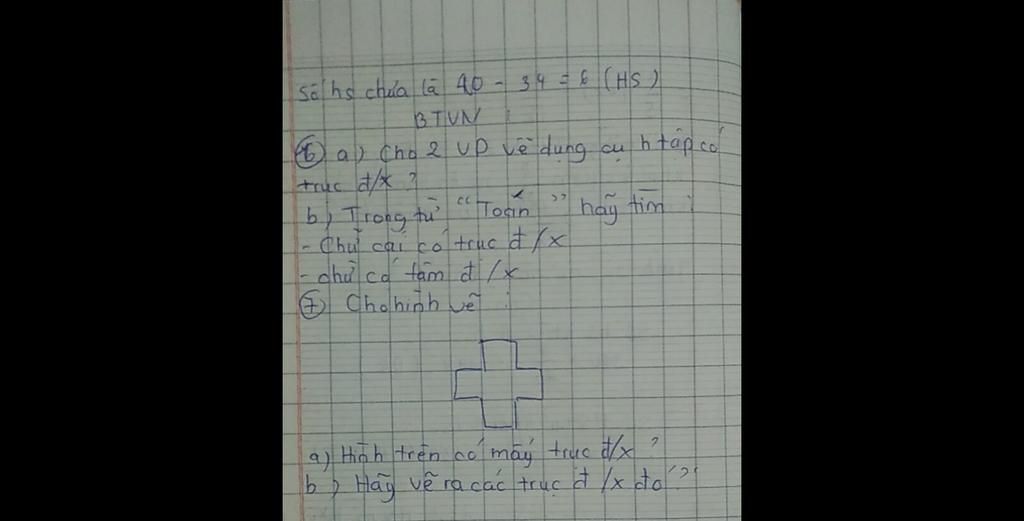 Số hs chưa là 40 - 34 = 6 (HS)
BTVN :
⑥ a) Cho 2 VD về dụng cụ h tập có
trục đ/x ?
b) Trong từ "Toán" hãy tìm :
- Chữ cái có trục đ/x
- chữ có tâm đ/x
⑦ Cho hình vẽ :
a) Hình trên có mấy trục đ/x ?
b) Hãy vẽ ra các trục đ/x đó ?